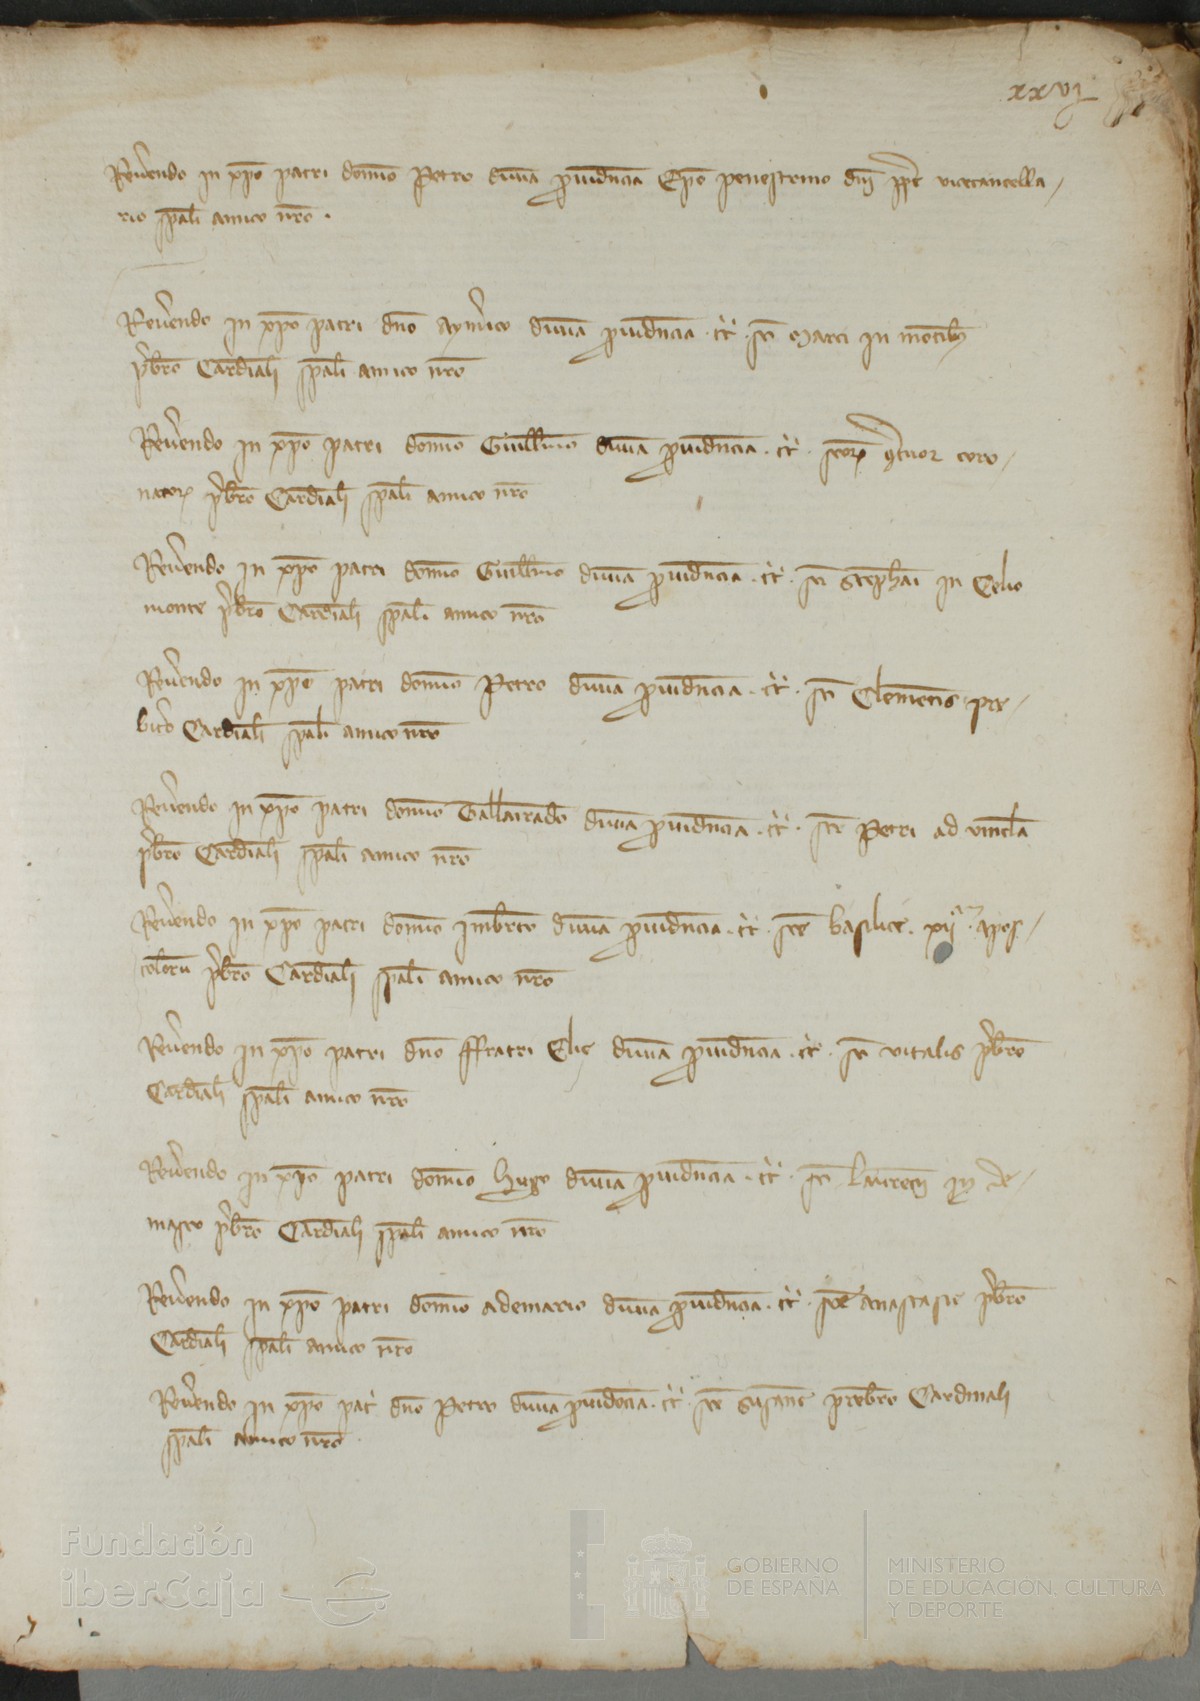 xxvj
Reu̅endo in xp̅o patri domi̅o Petro diui̅a p̱uide̅ncia Ep̅o penestrino dn̅i pp̅e vicecancella/
rio sp̅ali amico nr̅o .
Reu̅endo in xp̅o patri dn̅o aym̅ico diui̅a p̱uide̅ncia . tt̅i . sc̅i Marci in mo̅tib̅
p̅b̅ro Cardi̅ali sp̅ali amico nr̅o
Reu̅endo in xp̅o patri domi̅o Guill̅mo diui̅a p̱uide̅ncia . tt̅i . sc̅oꝝ q̅tuor coro/
natoꝝ p̅b̅ro Cardi̅ali sp̅ali amico nr̅o
Reu̅endo in xp̅o patri domi̅o Guill̅mo diui̅a p̱uide̅ncia . tt̅i . sc̅i steph̅ani in Celio
monte p̅b̅ro Cardi̅ali sp̅ali amico nr̅o
Reu̅endo in xp̅o patri domi̅o Petro diui̅a p̱uide̅ncia . tt̅i . sc̅i Cleme̅tis pre/
bit̅o Cardi̅ali sp̅ali amico nr̅o
Reu̅endo in xp̅o patri domi̅o diui̅a p̱uide̅ncia . tt̅i . sc̅i Petri ad vincl̅a
p̅b̅ro Cardi̅ali sp̅ali amico nr̅o
Reu̅endo in xp̅o patri domi̅o imb̅rto diui̅a p̱uide̅ncia . tt̅i . sc̅e basilice . xij . apos/
tolor̅u p̅b̅ro Cardi̅ali sp̅ali amico nr̅o
Reu̅endo in xp̅o patri dn̅o ffratri Elie diui̅a p̱uide̅ncia . tt̅i . sc̅i vitalis p̅b̅ro
Cardi̅ali sp̅ali amico nr̅o
Reu̅endo in xp̅o patri domi̅o hugo diui̅a p̱uide̅ncia . tt̅i . sc̅i laure̅cij in de/
maso p̅b̅ro Cardi̅ali sp̅ali amico nr̅o
Reu̅endo in xp̅o patri domi̅o ademario diui̅a p̱uide̅ncia . tt̅i . sc̅e anastasie p̅b̅ro
Cardi̅ali sp̅ali amico nr̅o
Reu̅endo in xp̅o pat̅i dn̅o Petro diui̅a p̱uide̅cia . tt̅i . sc̅e susan̅e preb̅ro Cardinali
sp̅ali amico nr̅o .
Fundación
iberCaja
GOBIERNO
DE ESPAÑA
MINISTERIO
DE EDUCACIÓN, CULTURA
Y DEPORTE